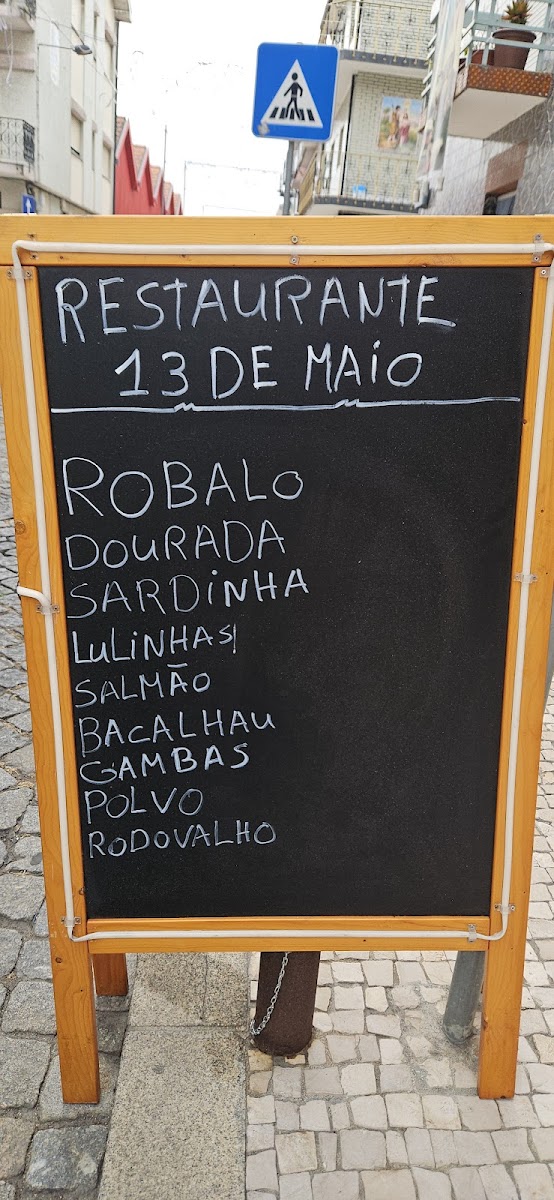 RESTAURANTE
13 DE MAIO
ROBALO
DOURADA
SARDINHA
LULINHAS
SALMÃO
BACALHAU
GAMBAS
POLVO
RODOVALHO